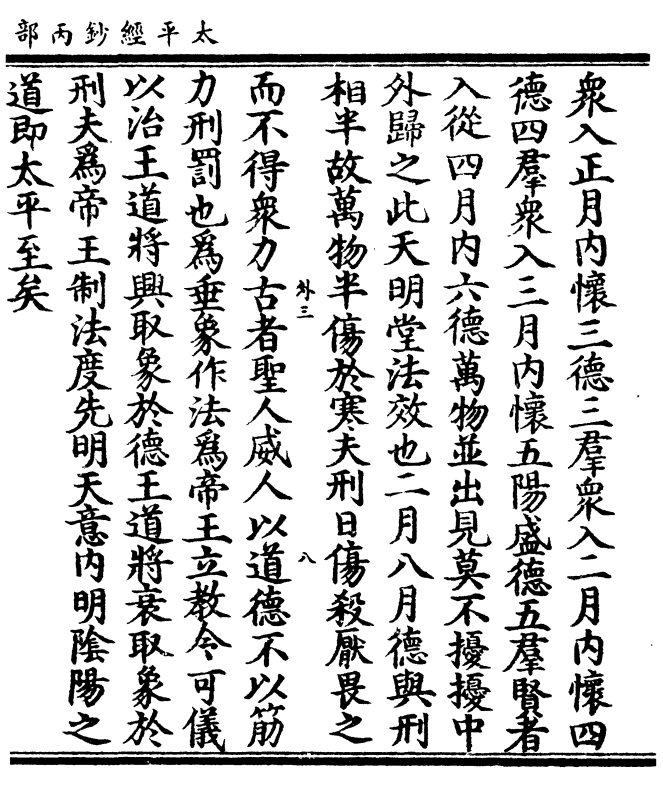 太平經鈔丙部
衆入正月內懷三德三羣衆入二月內懷四
德四羣衆入三月內懷五陽盛德五羣賢者
入從四月內六德萬物並出見莫不擾擾中
外歸之此天明堂法效也二月八月德與刑
相半故萬物半傷於寒夫刑日傷殺厭畏之
外三
八
而不得衆力古者聖人威人以道德不以筋
力刑罰也爲垂象作法爲帝王立教令可儀
以治王道將興取象於德王道將衰取象於
刑夫爲帝王制法度先明天意內明陰陽之
道即太平至矣